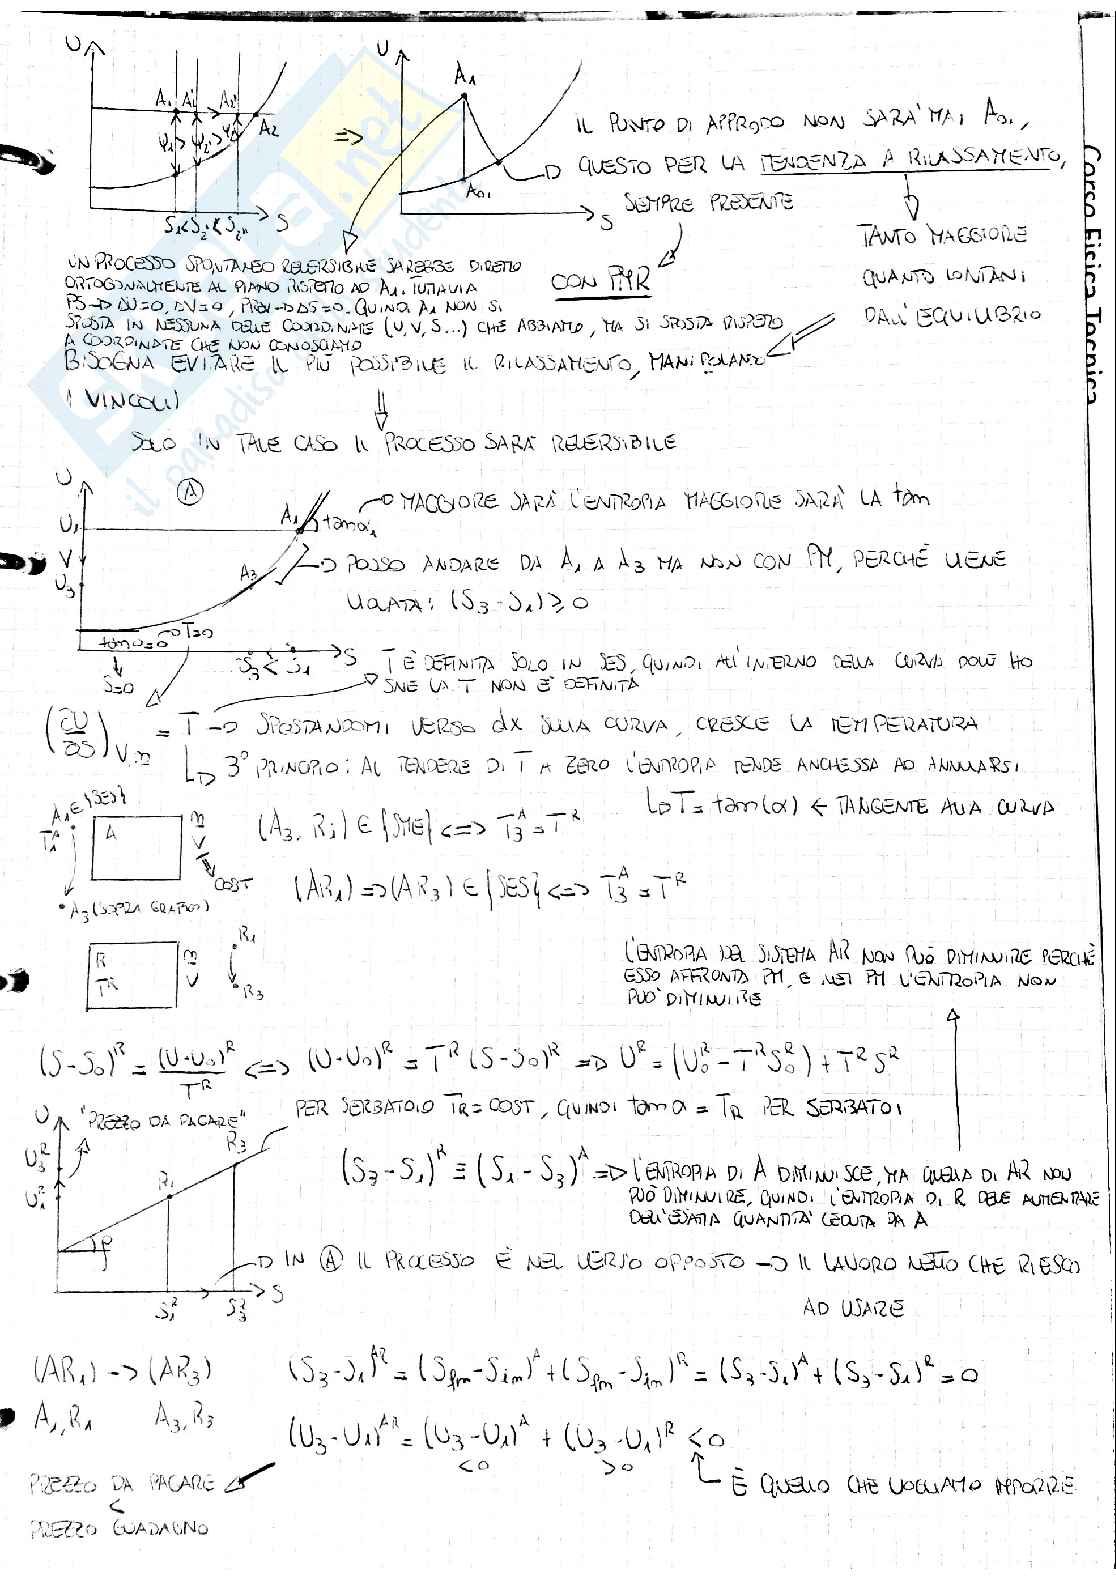 U
A₁ A₂' A₂'' A₂
φ₁ > φ₂' > φ₂''
S₁ < S₂' < S₂'' S
=>
U
A₁
A₀₁
S
IL PUNTO DI APPRODO NON SARÀ MAI A₀₁,
QUESTO PER LA TENDENZA A RILASSAMENTO,
SEMPRE PRESENTE
TANTO MAGGIORE
QUANTO LONTANI
DALL'EQUILIBRIO
CON PMR
UN PROCESSO SPONTANEO REVERSIBILE SAREBBE DIRETTO
ORTOGONALMENTE AL PIANO RISPETTO AD A₁. TUTTAVIA
PS -> ΔU=0, ΔV=0, PREV -> ΔS=0. QUINDI A₁ NON SI
SPOSTA IN NESSUNA DELLE COORDINATE (U, V, S...) CHE ABBIAMO, MA SI SPOSTA RISPETTO
A COORDINATE CHE NON CONOSCIAMO
BISOGNA EVITARE IL PIÙ POSSIBILE IL RILASSAMENTO, MANIPOLANDO
I VINCOLI
SOLO IN TALE CASO IL PROCESSO SARÀ REVERSIBILE
U
A
U₁
V
U₃
A₁ tanα₁
A₃
MAGGIORE SARÀ L'ENTROPIA MAGGIORE SARÀ LA tan
POSSO ANDARE DA A₁ A A₃ MA NON CON PM, PERCHÈ VIENE
VIOLATA: (S₃ - S₁) ≥ 0
tanα=0 -> T=0
S=0
S₃ < S₁ S
T È DEFINITA SOLO IN SES, QUINDI ALL'INTERNO DELLA CURVA DOVE HO
SNE LA T NON È DEFINITA
(∂U/∂S)V,n = T -> SPOSTANDOMI VERSO dx SULLA CURVA, CRESCE LA TEMPERATURA
3° PRINCIPIO: AL TENDERE DI T A ZERO L'ENTROPIA TENDE ANCHESSA AD ANNULLARSI
T = tan(α) <- TANGENTE ALLA CURVA
A₁ ∈ {SES}
T₁ᴬ
A
n
V
COST
A₃ (SOPRA GRAFICO)
(A₃, Rⱼ) ∈ {SME} <=> T₃ᴬ = Tᴿ
(AR₁) => (AR₃) ∈ {SES} <=> T₃ᴬ = Tᴿ
R
Tᴿ
n
V
R₁
R₃
L'ENTROPIA DEL SISTEMA AR NON PUÒ DIMINUIRE PERCHÈ
ESSO AFFRONTA PM, E NEI PM L'ENTROPIA NON
PUÒ DIMINUIRE
(S-S₀)ᴿ = (U-U₀)ᴿ/Tᴿ <=> (U-U₀)ᴿ = Tᴿ (S-S₀)ᴿ => Uᴿ = (U₀ᴿ - TᴿS₀ᴿ) + TᴿSᴿ
PER SERBATOIO TR = COST, QUINDI tan α = TR PER SERBATOI
U "PREZZO DA PAGARE"
U₃ᴿ
U₁ᴿ
R₁
R₃
φ
S₁ᴿ S₃ᴿ S
(S₃ - S₁)ᴿ = (S₁ - S₃)ᴬ => L'ENTROPIA DI A DIMINUISCE, MA QUELLA DI AR NON
PUÒ DIMINUIRE, QUINDI L'ENTROPIA DI R DEVE AUMENTARE
DELL'ESATTA QUANTITÀ CEDUTA DA A
IN A IL PROCESSO È NEL VERSO OPPOSTO -> IL LAVORO NETTO CHE RIESCO
AD USARE
(AR₁) -> (AR₃)
A₁,R₁ A₃,R₃
(S₃-S₁)ᴬᴿ = (Sfin-Sin)ᴬ + (Sfin-Sin)ᴿ = (S₃-S₁)ᴬ + (S₃-S₁)ᴿ = 0
(U₃-U₁)ᴬᴿ = (U₃-U₁)ᴬ + (U₃-U₁)ᴿ < 0
<0 >0
È QUELLO CHE VOGLIAMO IMPORRE
PREZZO DA PAGARE
<
PREZZO GUADAGNO
Corso Fisica Tecnica